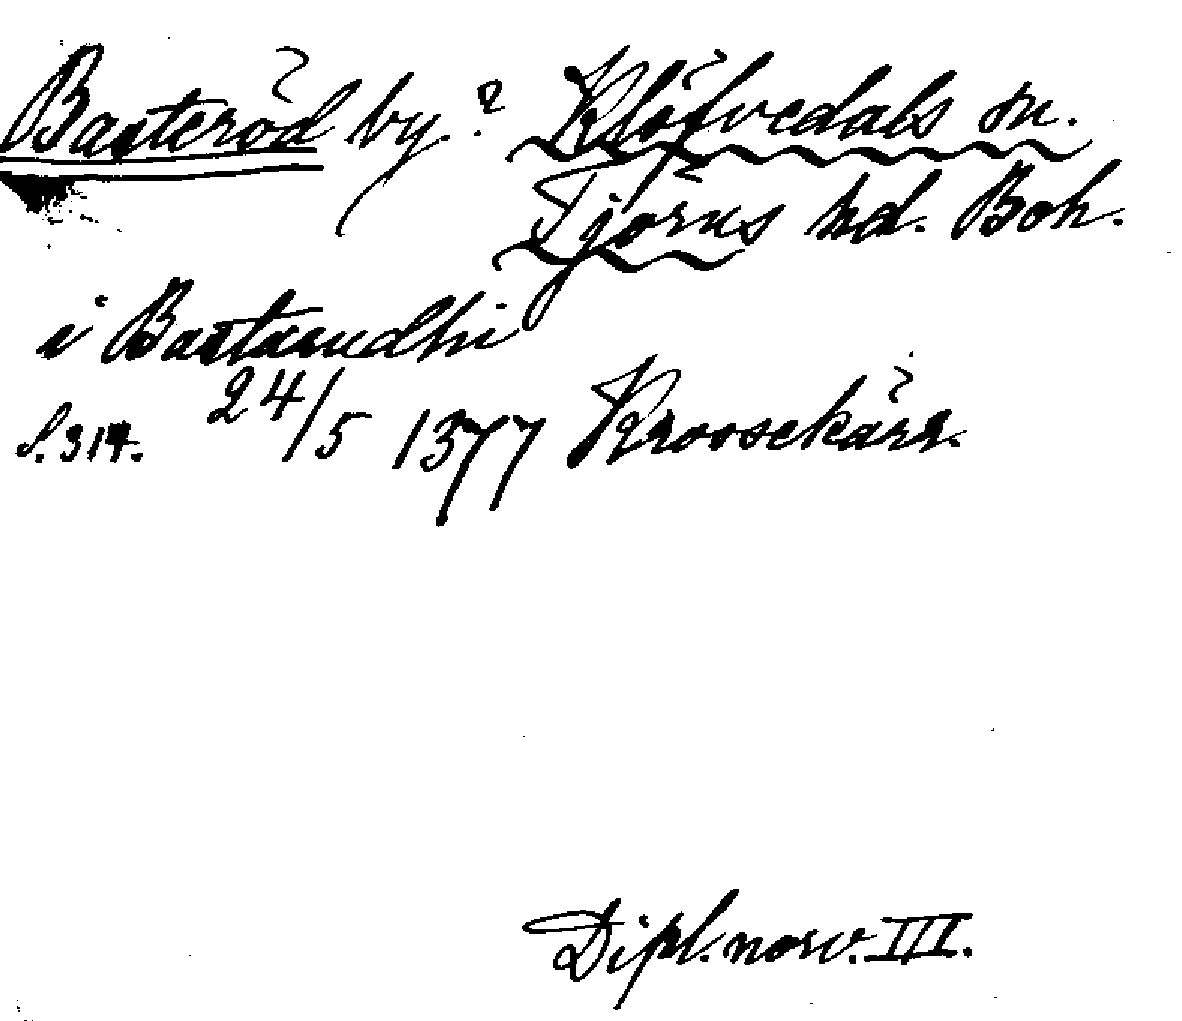 Basteröd by.? Klöfvedals sn.
Tjörns hd. Boh.
i Bastarudhi
S. 314. 24/5 1377 Kroosekärr.
Dipl. norv. III.